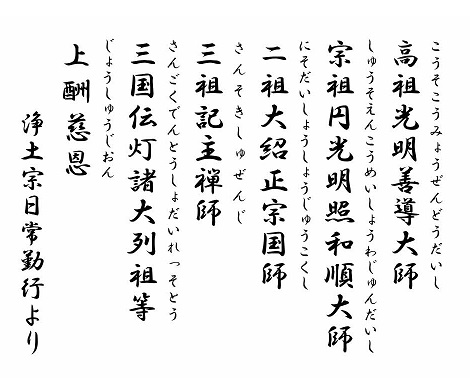 こうそこうみょうぜんどうだいし
高祖光明善導大師
しゅうそえんこうめいしょうわじゅんだいし
宗祖円光明照和順大師
にそだいしょうしょうじゅうこくし
二祖大紹正宗国師
さんそきしゅぜんじ
三祖記主禅師
さんごくでんとうしょだいれっそとう
三国伝灯諸大列祖等
じょうしゅうじおん
上酬慈恩
浄土宗日常勤行より